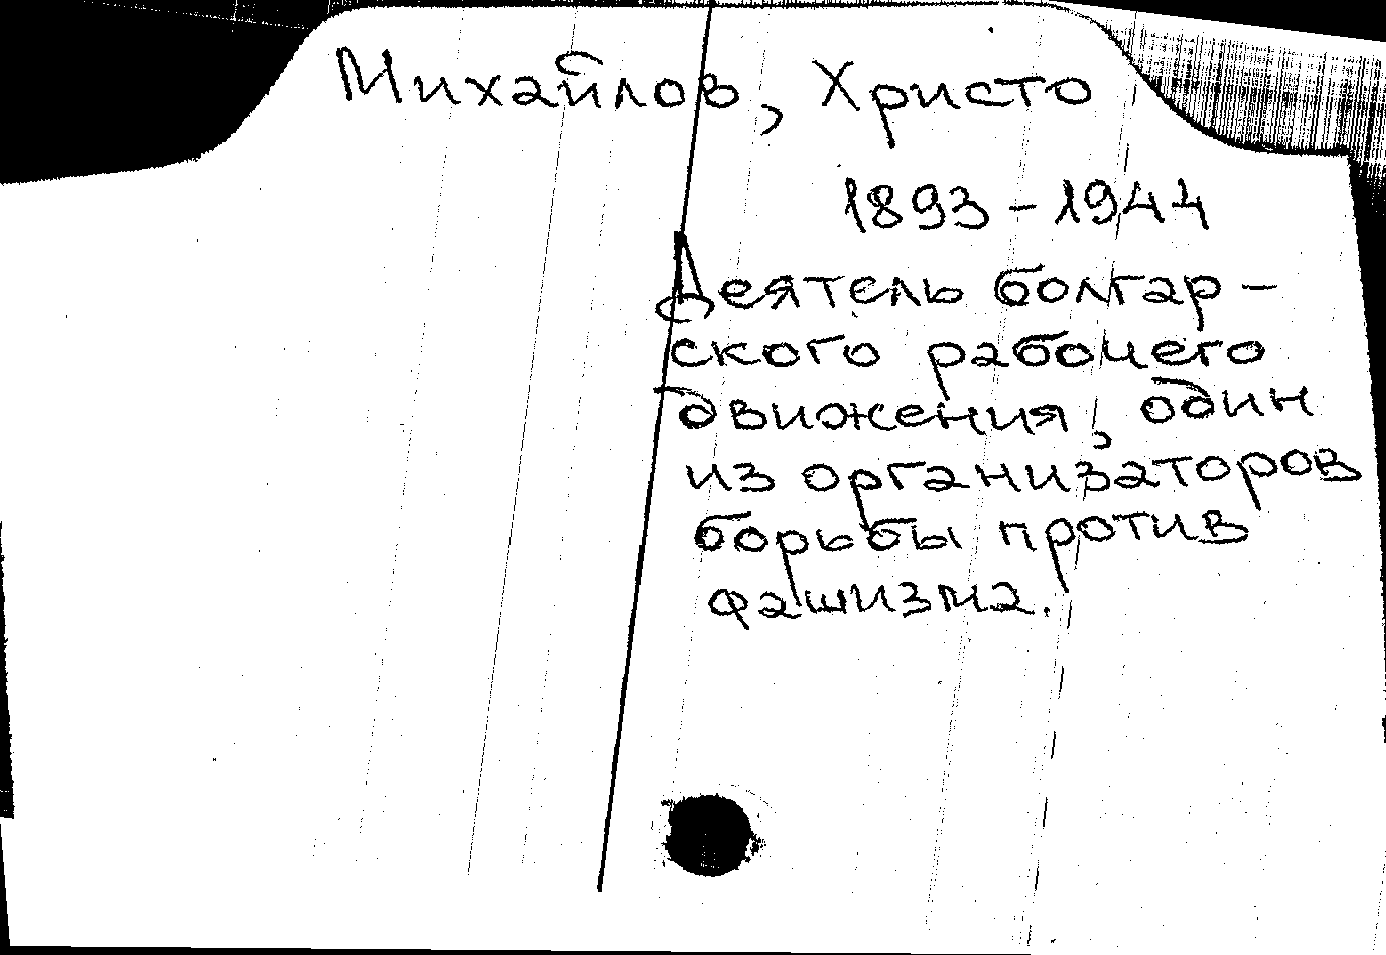 Михайлов, Христо
1893 - 1944
Деятель болгар-
ского рабочего
движения, один
из организаторов
борьбы против
фашизма.